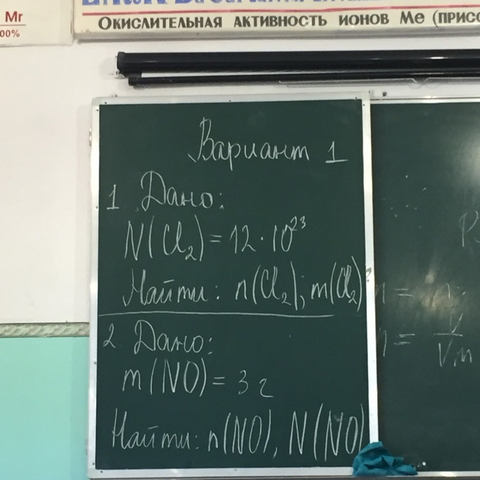 Mr
100%
Окислительная активность ионов Me (присо
Вариант 1
1 Дано:
N(Cl₂) = 12 · 10²³
Найти: n(Cl₂); m(Cl₂)
2 Дано:
m(NO) = 3 г
Найти: n(NO), N(NO)